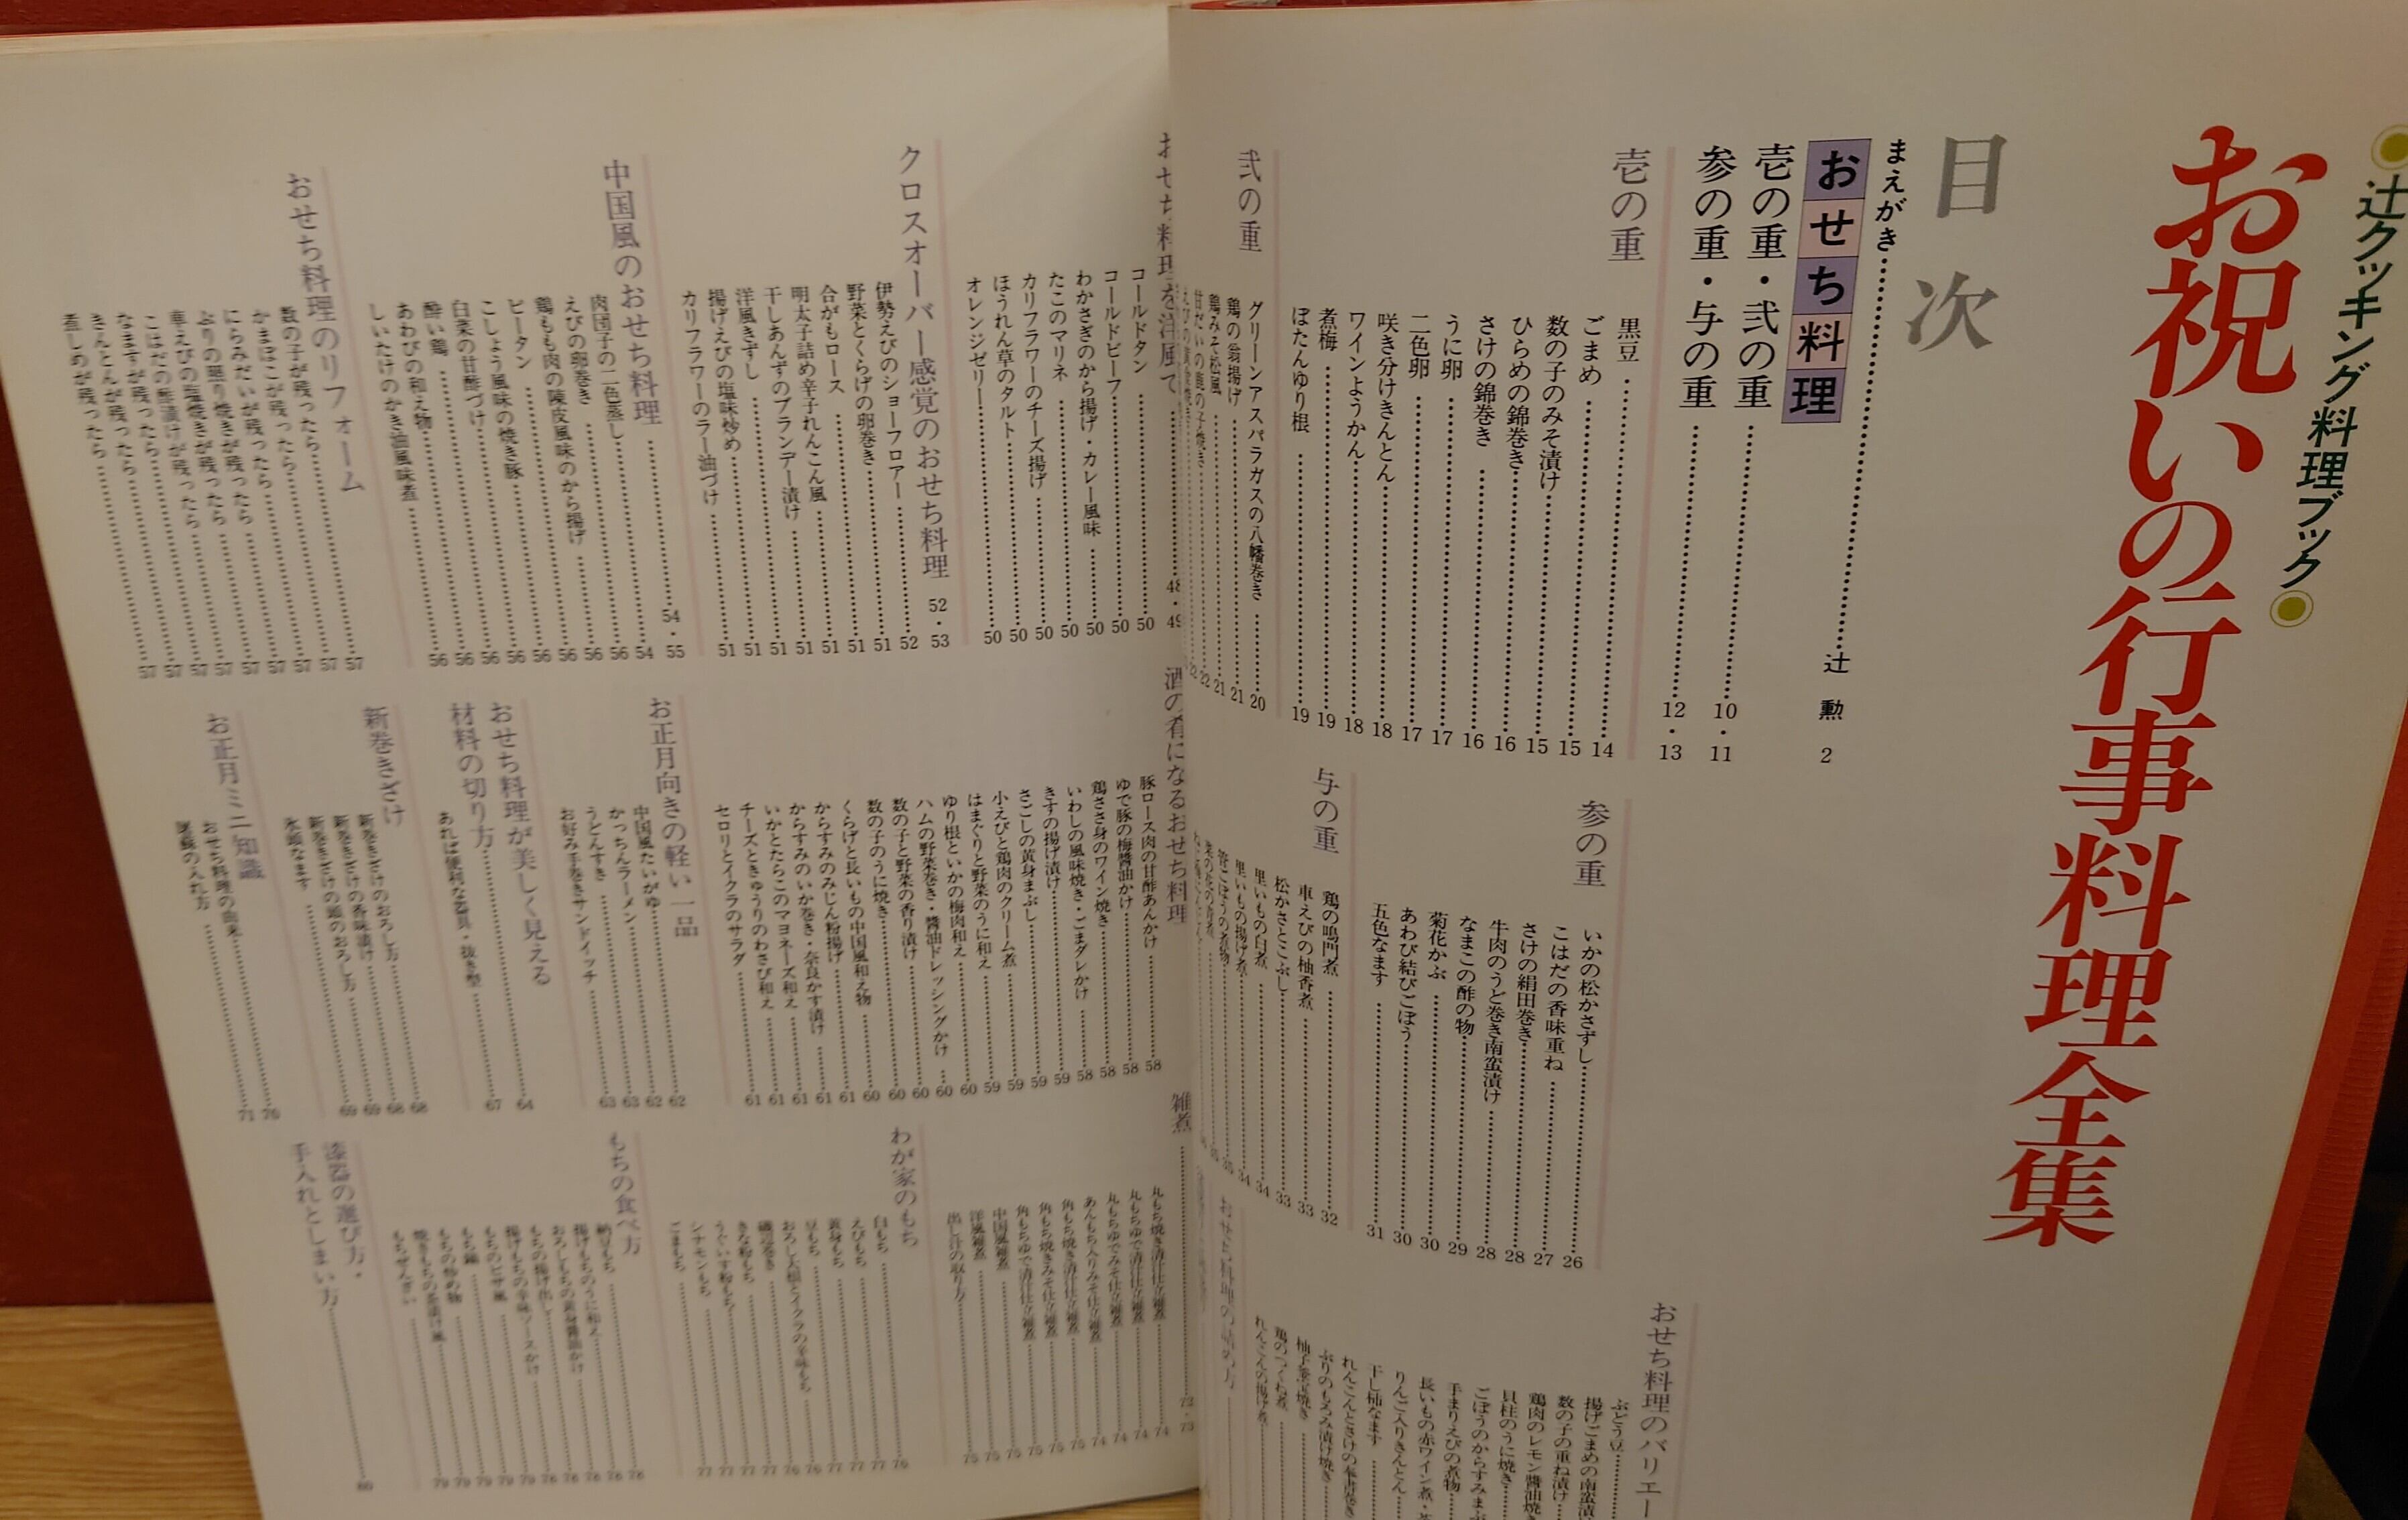 辻クッキング料理ブック
お祝いの行事料理全集
目次
まえがき 辻 勲 2
おせち料理
壱の重・弐の重 10・11
参の重・与の重 12・13
壱の重
黒豆 14
ごまめ 15
数の子のみそ漬け 15
ひらめの錦巻き 16
さけの錦巻き 16
うに卵 17
二色卵 17
咲き分けきんとん 18
ワインようかん 18
煮梅 19
ぼたんゆり根 19
弐の重
グリーンアスパラガスの八幡巻き 20
鶏の翁揚げ 21
鶏みそ松風 21
参の重
いかの松かさずし 26
こはだの香味重ね 27
さけの絹田巻き 28
牛肉のうど巻き南蛮漬け 28
なまこの酢の物 29
菊花かぶ 30
あわび結びごぼう 30
五色なます 31
与の重
鶏の鳴門煮 32
車えびの柚香煮 33
松かさとこぶし 33
里いもの白煮 34
里いもの揚げ煮 34
おせち料理のバリエー
ぶどう豆
揚げごまめの南蛮漬
数の子の重ね漬け
鶏肉のレモン醬油焼
貝柱のうに焼き
ごぼうのからすみまぶ
手まりえびの煮物
長いもの赤ワイン煮・
りんご入りきんとん
干し柿なます
れんこんとさけの奉書巻き
ぶりのもろみ漬け焼き
柚子釜焼き
鶏のつくね煮
れんこんの揚げ煮
おせち料理を洋風で 48・49
コールドタン 50
コールドビーフ 50
わかさぎのから揚げ・カレー風味 50
たこのマリネ 50
カリフラワーのチーズ揚げ 50
ほうれん草のタルト 50
オレンジゼリー 50
クロスオーバー感覚のおせち料理 52・53
伊勢えびのショーフロアー 52
野菜とくらげの卵巻き 51
合がもロース 51
明太子詰め辛子れんこん風 51
干しあんずのブランデー漬け 51
洋風きずし 51
揚げえびの塩味炒め 51
カリフラワーのラー油づけ 51
中国風のおせち料理 54・55
肉団子の二色蒸し 54
えびの卵巻き 56
鶏もも肉の陳皮風味のから揚げ 56
ピータン 56
こしょう風味の焼き豚 56
白菜の甘酢づけ 56
酔い鶏 56
あわびの和え物 56
しいたけのかき油風味煮 56
おせち料理のリフォーム
数の子が残ったら 57
かまぼこが残ったら 57
にらみだいが残ったら 57
ぶりの照り焼きが残ったら 57
車えびの塩焼きが残ったら 57
こはだの酢漬けが残ったら 57
なますが残ったら 57
きんとんが残ったら 57
煮しめが残ったら 57
酒の肴になるおせち料理
豚ロース肉の甘酢あんかけ 58
ゆで豚の梅醬油かけ 58
鶏ささ身のワイン焼き 58
いわしの風味焼き・ごまダレかけ 58
きすの揚げ漬け 59
さごしの黄身まぶし 59
小えびと鶏肉のクリーム煮 59
はまぐりと野菜のうに和え 59
ゆり根といかの梅肉和え 60
ハムの野菜巻き・醬油ドレッシングかけ 60
数の子と野菜の香り漬け 60
数の子のうに焼き 60
くらげと長いもの中国風和え物 60
からすみのみじん粉揚げ 61
からすみのいか巻き・奈良かす漬け 61
いかとたらこのマヨネーズ和え 61
チーズときゅうりのわさび和え 61
セロリとイクラのサラダ 61
お正月向きの軽い一品 62
中国風たいがゆ 62
かっちんラーメン 63
うどんすき 63
お好み手巻きサンドイッチ
おせち料理が美しく見える
材料の切り方 64
あれば便利な器具・抜き型 67
新巻きざけ
新巻きざけのおろし方 68
新巻きざけの香味漬け 68
新巻きざけの頭のおろし方 69
氷頭なます 69
お正月ミニ知識
おせち料理の由来
屠蘇の入れ方 71
雑煮
丸もち焼き清汁仕立雑煮 74
丸もちゆで清汁仕立雑煮 74
丸もちゆでみそ仕立雑煮 74
あんもち入りみそ仕立雑煮 74
角もち焼き清汁仕立雑煮 75
角もち焼きみそ仕立雑煮 75
角もちゆで清汁仕立雑煮 75
中国風雑煮 75
洋風雑煮 75
出し汁の取り方 75
わが家のもち
白もち 76
えびもち 77
黄身もち 77
豆もち 77
おろし大根とイクラの辛味もち
磯辺巻き
きな粉もち 77
うぐいす粉もち 77
シナモンもち 77
ごまもち 77
もちの食べ方
納豆もち 78
揚げもちのうに和え 78
おろしもちの黄身醬油かけ 78
もちの揚げ出し 78
揚げもちの辛味ソースかけ
もちのピザ風 79
もち鍋 79
もちの炒め物 79
焼きもちの茶漬け風 79
もちぜんざい 79
漆器の選び方・
手入れとしまい方 80